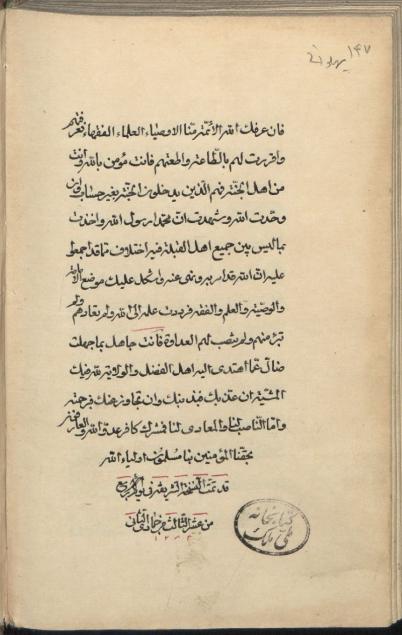 ۱۴۷
فان عرفك الله الأئمة منا الاوصياء العلماء الفقهاء فعرفتهم
واقررت لهم بالطاعة واطعتهم فانت مؤمن بالله وانت
من اهل الجنة فهم الذين يدخلون الجنة بغير حساب وان
وحدت الله وشهدت ان محمدا رسول الله واخذت
بما ليس بين جميع اهل القبلة فيه اختلاف مما قد اجمعوا
عليه ان الله قد امر به ونهى عنه واشكل عليك موضع الأئمة
والوصية والعلم والفقه فرددت علمه الى الله ولم تعادهم ولم
تبرء منهم ولم تنصب لهم العداوة فانت جاهل بما جهلت
ضال عما اهتدى اليه اهل الفضل والولاية لله فيك
المشية ان عذبك فبذنبك وان تجاوز عنك فبرحمته
واما الناصب لنا والمعادى لنا فمشرك كافر عدو الله والعارف
بحقنا المؤمن بنا مسلم ولى اولياء الله
قد تمت النسخة الشريفة فى يوم
من عشر الثالث من جمادى الثانى
كتابخانه
ملى ملك